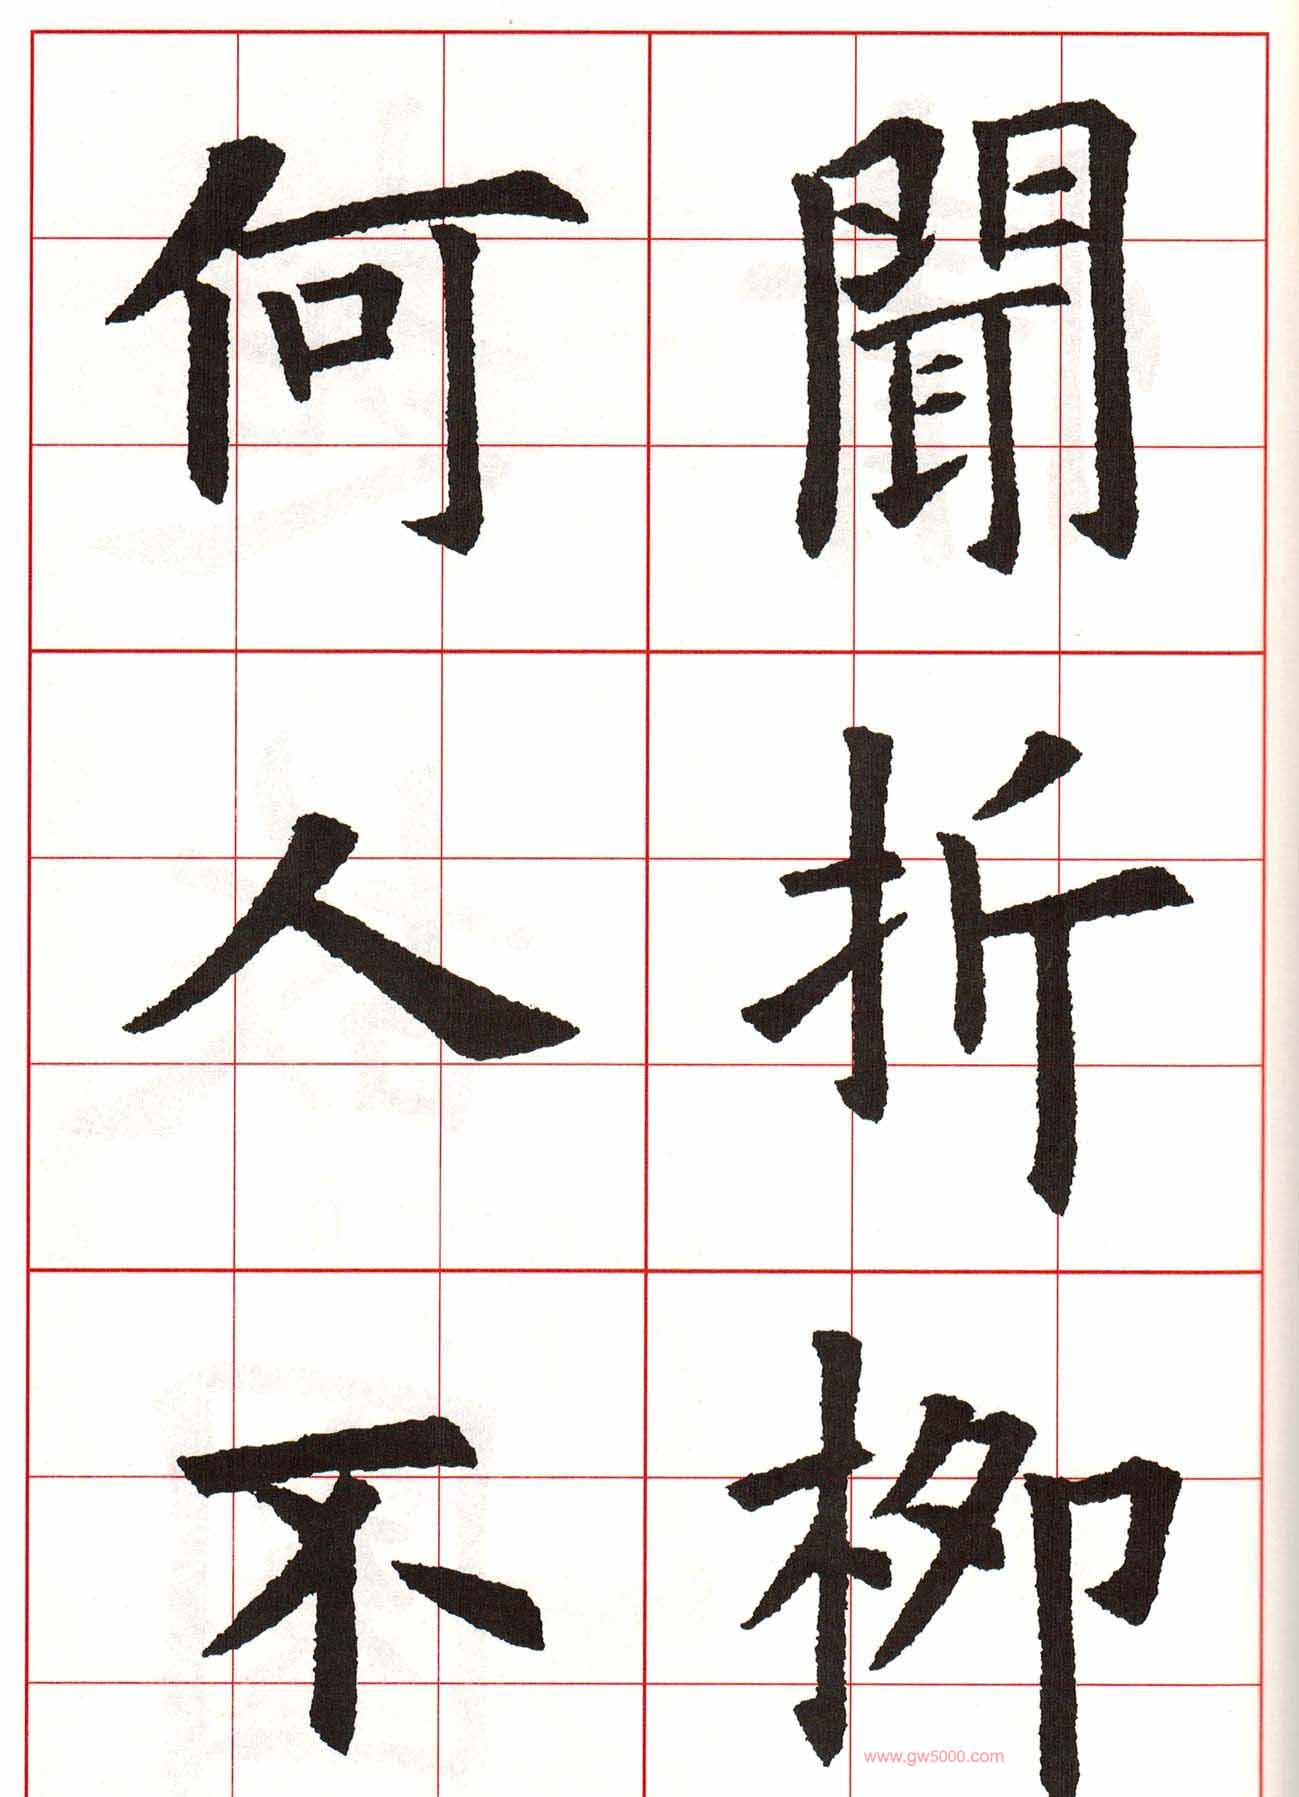 聞折柳
何人不
www.gw5000.com